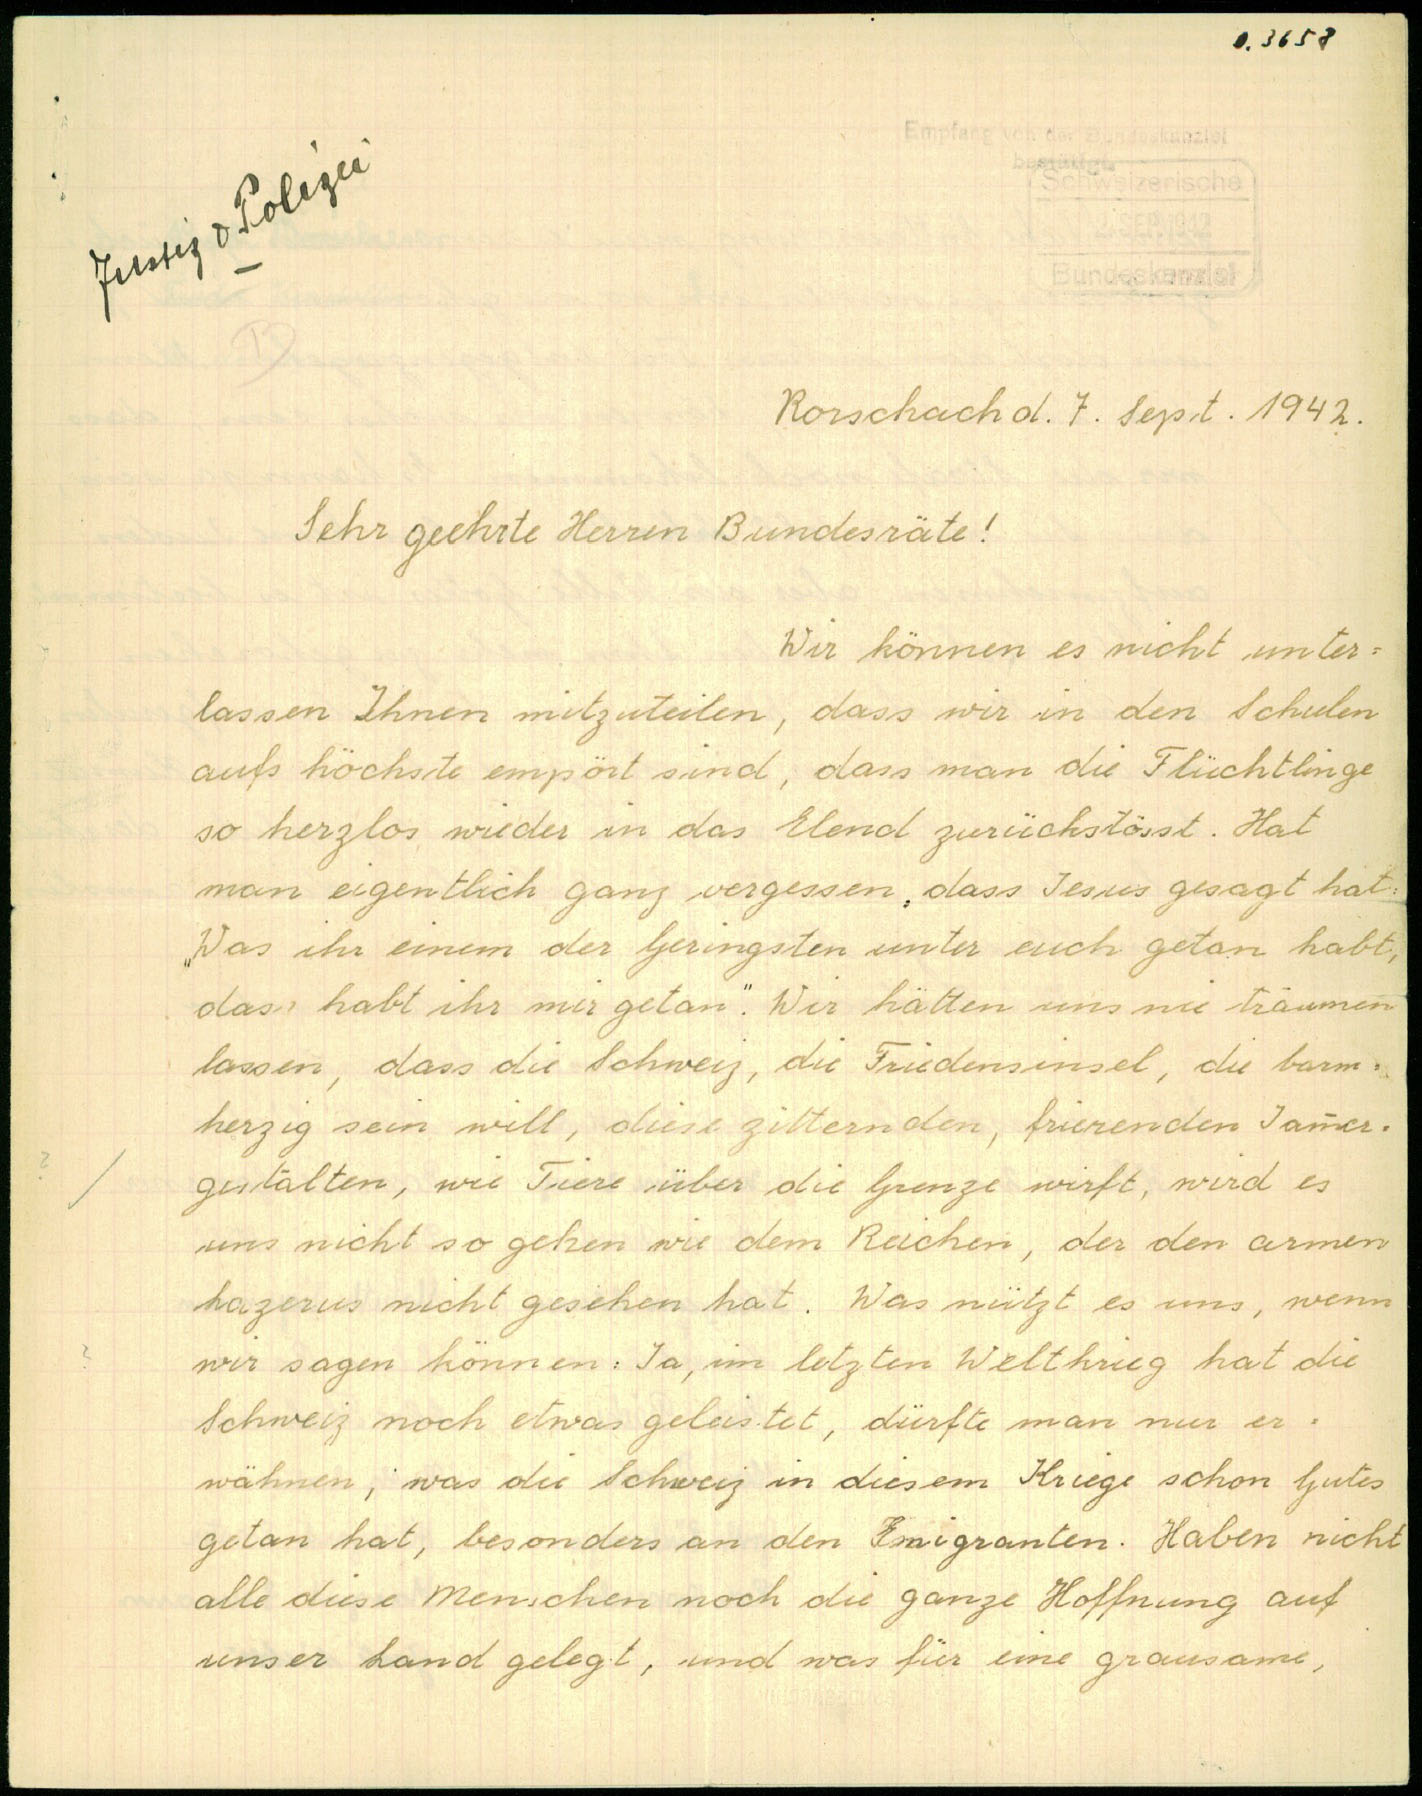 0.3658
Empfang von der Bundeskanzlei
bestätigt.
Schweizerische
SEP. 1942
Bundeskanzlei
Justiz & Polizei
Rorschach d. 7. Sept. 1942.
Sehr geehrte Herren Bundesräte!
Wir können es nicht unter=
lassen Ihnen mitzuteilen, dass wir in den Schulen
aufs höchste empört sind, dass man die Flüchtlinge
so herzlos wieder in das Elend zurückstösst. Hat
man eigentlich ganz vergessen, dass Jesus gesagt hat:
„Was ihr einem der Geringsten unter euch getan habt,
das habt ihr mir getan". Wir hätten uns nie träumen
lassen, dass die Schweiz, die Friedensinsel, die barm=
herzig sein will, diese zitternden, frierenden Jam̄er=
gestalten, wie Tiere über die Grenze wirft, wird es
uns nicht so gehen wie dem Reichen, der den armen
Lazerus nicht gesehen hat. Was nützt es uns, wenn
wir sagen können: Ja, im letzten Weltkrieg hat die
Schweiz noch etwas geleistet, dürfte man nur er=
wähnen, was die Schweiz in diesem Kriege schon Gutes
getan hat, besonders an den Emigranten. Haben nicht
alle diese Menschen noch die ganze Hoffnung auf
unser Land gelegt, und was für eine grausame,